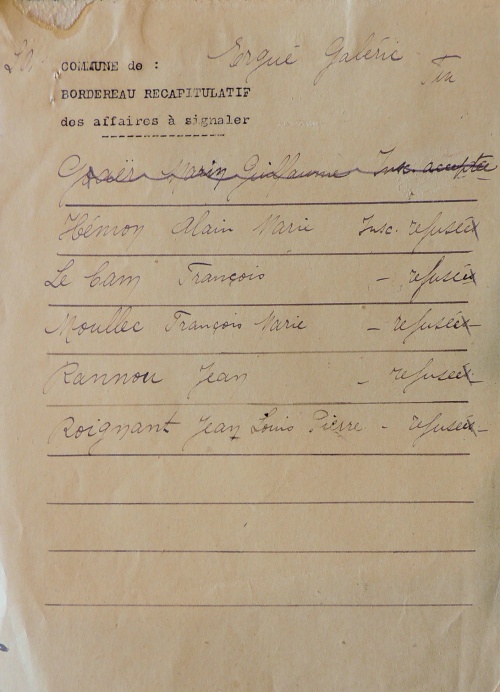 COMMUNE de : Ergué Gabéric
BORDEREAU RECAPITULATIF
des affaires à signaler
Goaër Marin Guillaume Insc. acceptée
Hémon Alain Marie Insc. refusée
Le Cam François - refusée
Moullec François Marie - refusée
Rannou Jean - refusée
Roignant Jean Louis Pierre - refusée